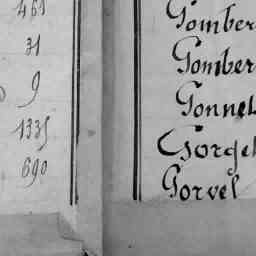 461
31
9
1335
690
Gomber
Gomber
Gonnel
Gorgel
Gorvel